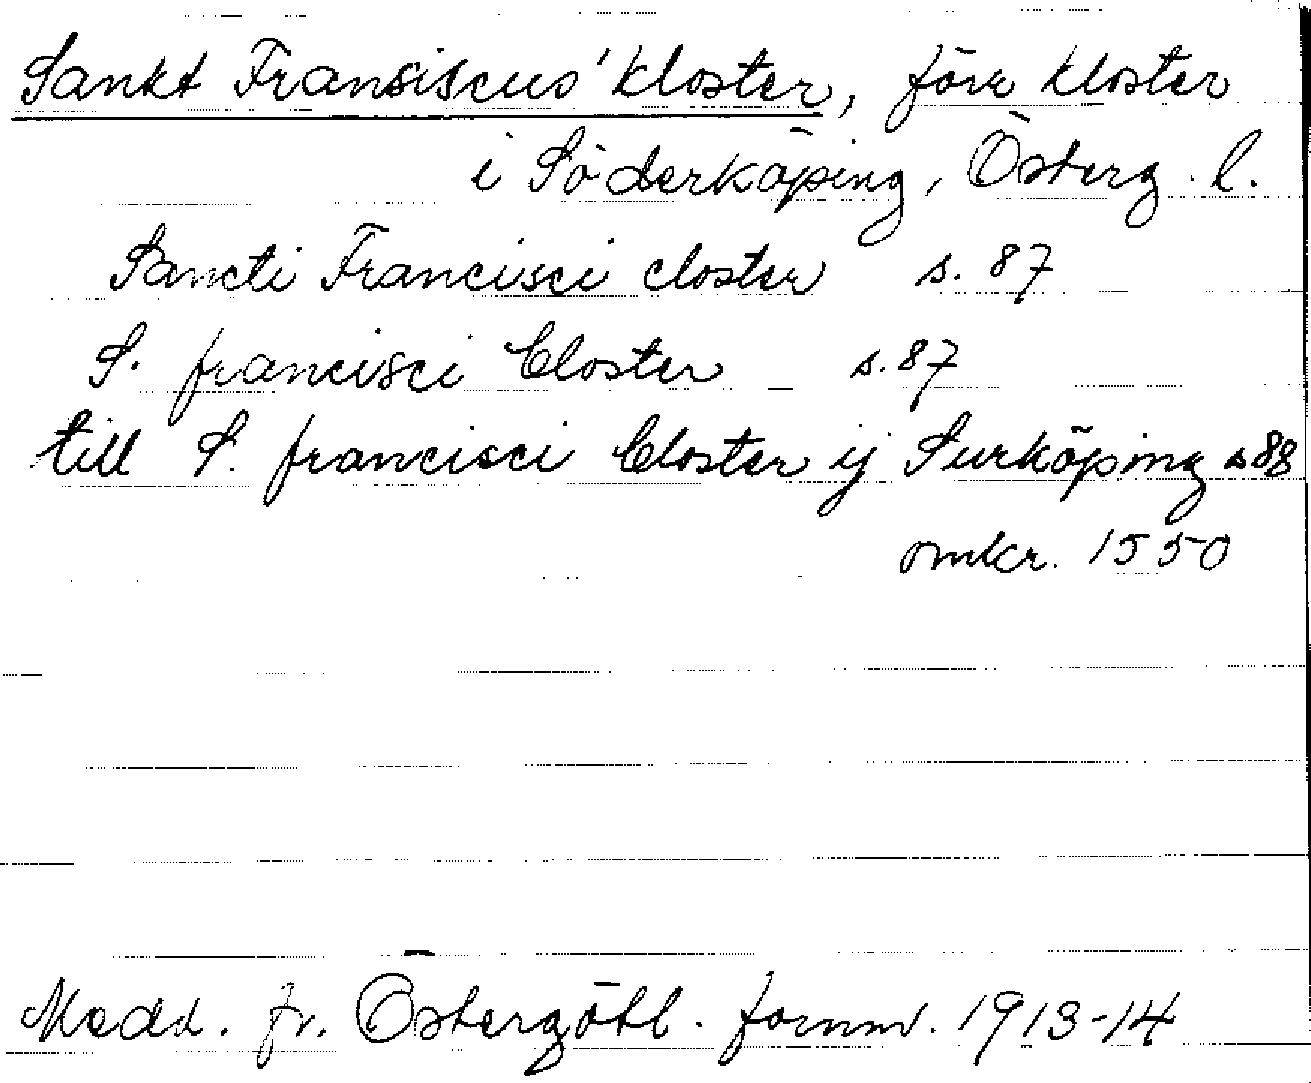 Sankt Fransiscus' kloster, förr kloster
i Söderköping, Österg. l.
Sancti Francisci closter s. 87
S. francisci Closter s. 87
till S. francisci Closter ij Surköping s 88
omkr. 1550
Medd. fr. Östergötl. fornm. 1913-14